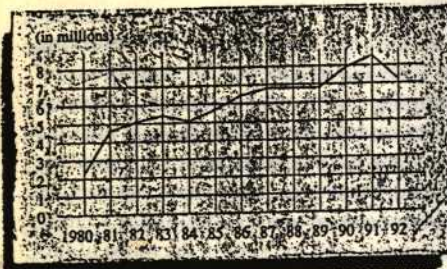 (in millions)
9
8
7
6
5
4
3
2
1
0
1980 81 82 83 84 85 86 87 88 89 90 91 92